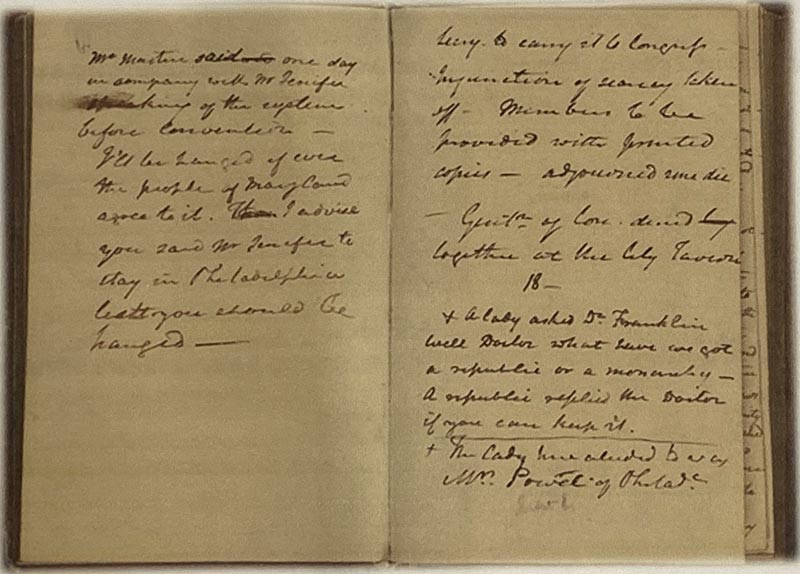 Mr Martin said one day
in company with Mr Jenifer
speaking of the system
before Convention —
I'll be hanged if ever
the people of Maryland
agree to it. I advise
you said Mr Jenifer to
stay in Philadelphia
lest you should be
hanged —
Secy. to carry it to Congress —
Injunction of secrecy taken
off — Members to be
provided with printed
copies — adjourned sine die
— Gentn. of Con. dined
together at the City Tavern
18 —
+ A lady asked Dr. Franklin
well Doctor what have we got
a republic or a monarchy —
A republic replied the Doctor
if you can keep it.
+ The Lady here aluded to was
Mrs. Powel of Philada.